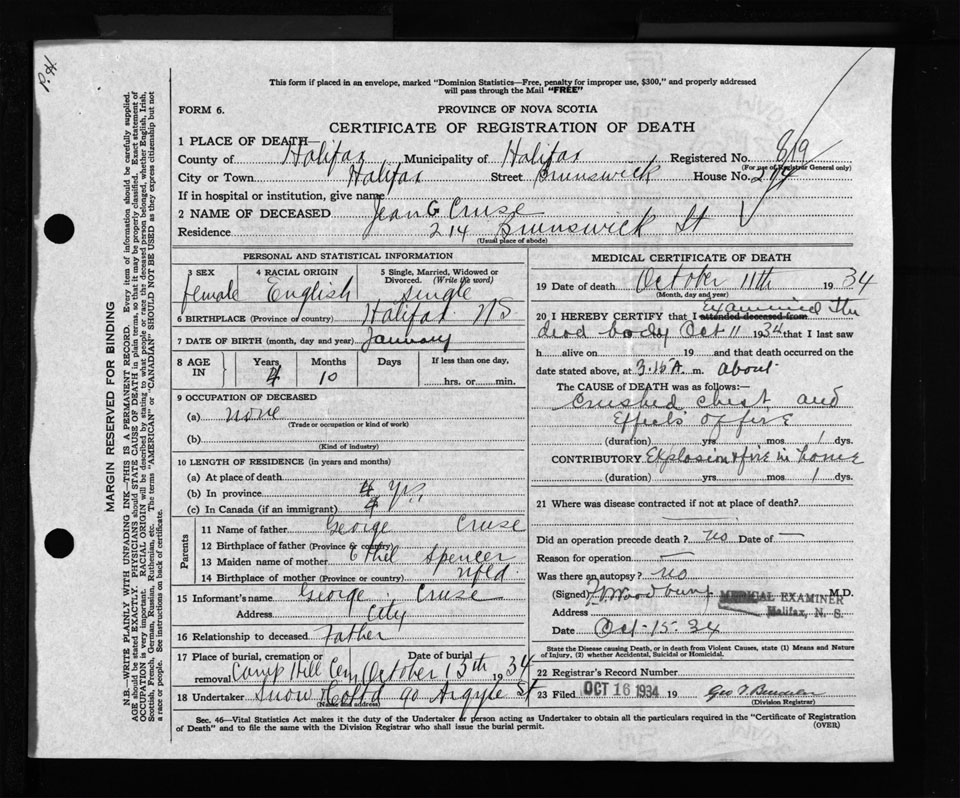 This form if placed in an envelope, marked "Dominion Statistics—Free, penalty for improper use, $300," and properly addressed
will pass through the Mail "FREE"
FORM 6. PROVINCE OF NOVA SCOTIA
CERTIFICATE OF REGISTRATION OF DEATH
1 PLACE OF DEATH—
County of Halifax Municipality of Halifax Registered No. 819
(For use of Registrar General only)
City or Town Halifax Street Brunswick House No. 214
If in hospital or institution, give name
2 NAME OF DECEASED Jean G Cruse
Residence 214 Brunswick St
(Usual place of abode)
PERSONAL AND STATISTICAL INFORMATION
3 SEX 4 RACIAL ORIGIN 5 Single, Married, Widowed or Divorced. (Write the word)
female English Single
6 BIRTHPLACE (Province or country) Halifax NS
7 DATE OF BIRTH (month, day and year) January
8 AGE IN Years Months Days If less than one day,
4 10 hrs. or min.
9 OCCUPATION OF DECEASED
(a) none
(Trade or occupation or kind of work)
(b)
(Kind of industry)
10 LENGTH OF RESIDENCE (in years and months)
(a) At place of death
(b) In province 4 Yrs.
(c) In Canada (if an immigrant) 4
Parents
11 Name of father George Cruse
12 Birthplace of father (Province or country)
13 Maiden name of mother Ethel Spencer
14 Birthplace of mother (Province or country) Nfld
15 Informant's name George Cruse
Address City
16 Relationship to deceased Father
17 Place of burial, cremation or removal Date of burial
Camp Hill Cem October 13th 1934
18 Undertaker Snow & Co Ltd 90 Argyle St
(Name and address)
MEDICAL CERTIFICATE OF DEATH
19 Date of death October 11th 1934
(Month, day and year)
20 I HEREBY CERTIFY that I attended deceased from examined the
dead body Oct 11 1934 that I last saw
h alive on 19 and that death occurred on
date stated above, at 3.15 A. m. about
The CAUSE OF DEATH was as follows:—
Crushed chest and
Effects of fire
(duration) yrs mos 1 dys.
CONTRIBUTORY Explosion & fire in house
(duration) yrs mos 1 dys.
21 Where was disease contracted if not at place of death?
Did an operation precede death? no Date of —
Reason for operation —
Was there an autopsy? no
(Signed) M.D.
MEDICAL EXAMINER
Address Halifax, N. S.
Date Oct-15-34
State the Disease causing Death, or in death from Violent Causes, state (1) Means and Nature
of Injury, (2) whether Accidental, Suicidal or Homicidal.
22 Registrar's Record Number
23 Filed OCT 16 1934 19
(Division Registrar)
Sec. 46—Vital Statistics Act makes it the duty of the Undertaker or person acting as Undertaker to obtain all the particulars required in the "Certificate of Registration
of Death" and to file the same with the Division Registrar who shall issue the burial permit. (OVER)
MARGIN RESERVED FOR BINDING
N.B.—WRITE PLAINLY WITH UNFADING INK—THIS IS A PERMANENT RECORD. Every item of information should be carefully supplied.
AGE should be stated EXACTLY. PHYSICIANS should STATE CAUSE OF DEATH in plain terms, so that it may be properly classified. Exact statement of
OCCUPATION is very important. RACIAL ORIGIN will be described by stating to what people or race the deceased person belonged, whether English, Irish,
Scottish, French, German, Russian, Ruthenian, etc. The terms "AMERICAN" or "CANADIAN" SHOULD NOT BE USED as they express citizenship but not
a race or people. See instructions on back of certificate.